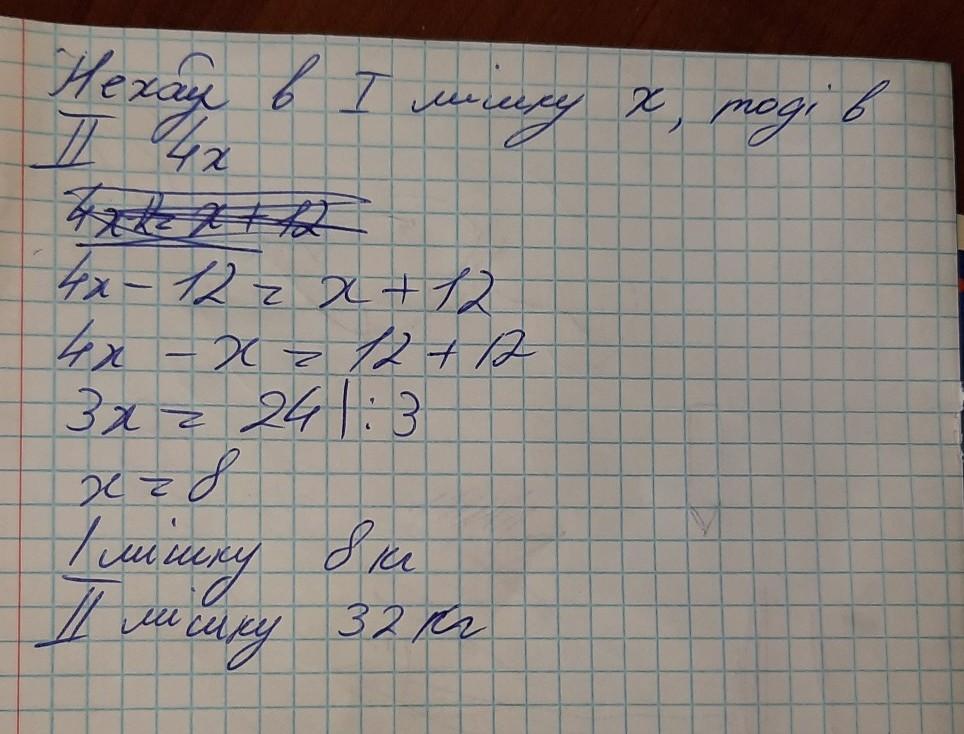 Нехай в I мішку x, тоді в
II 4x
4x - 12 = x + 12
4x - x = 12 + 12
3x = 24 | : 3
x = 8
I мішку 8 кг
II мішку 32 кг